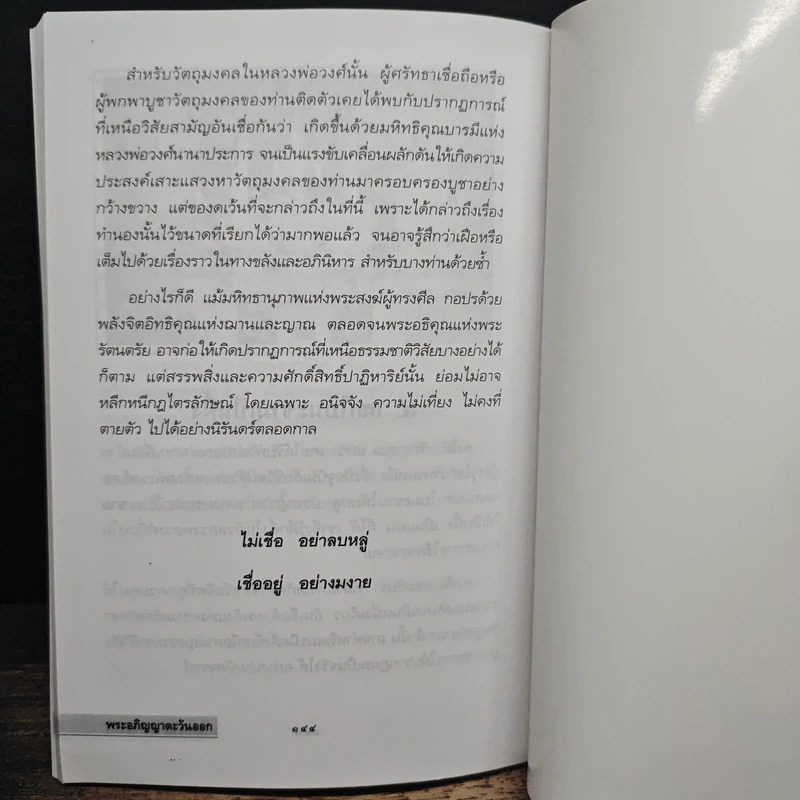 สำหรับวัตถุมงคลในหลวงพ่อวงศ์นั้น ผู้ศรัทธาเชื่อถือหรือ
ผู้พกพาบูชาวัตถุมงคลของท่านติดตัวเคยได้พบกับปรากฏการณ์
ที่เหนือวิสัยสามัญอันเชื่อกันว่า เกิดขึ้นด้วยมหิทธิคุณบารมีแห่ง
หลวงพ่อวงศ์นานาประการ จนเป็นแรงขับเคลื่อนผลักดันให้เกิดความ
ประสงค์เสาะแสวงหาวัตถุมงคลของท่านมาครอบครองบูชาอย่าง
กว้างขวาง แต่ของดเว้นที่จะกล่าวถึงในที่นี้ เพราะได้กล่าวถึงเรื่อง
ทำนองนั้นไว้ขนาดที่เรียกได้ว่ามากพอแล้ว จนอาจรู้สึกว่าเฝือหรือ
เต็มไปด้วยเรื่องราวในทางขลังและอภินิหาร สำหรับบางท่านด้วยซ้ำ
อย่างไรก็ดี แม้มหิทธานุภาพแห่งพระสงฆ์ผู้ทรงศีล กอปรด้วย
พลังจิตอิทธิคุณแห่งฌานและญาณ ตลอดจนพระอธิคุณแห่งพระ
รัตนตรัย อาจก่อให้เกิดปรากฏการณ์ที่เหนือธรรมชาติวิสัยบางอย่างได้
ก็ตาม แต่สรรพสิ่งและความศักดิ์สิทธิ์ปาฏิหาริย์นั้น ย่อมไม่อาจ
หลีกหนีกฎไตรลักษณ์ โดยเฉพาะ อนิจจัง ความไม่เที่ยง ไม่คงที่
ตายตัว ไปได้อย่างนิรันดร์ตลอดกาล
ไม่เชื่อ อย่าลบหลู่
เชื่ออยู่ อย่างมงาย
พระอภิญญาตะวันออก
๑๔๔